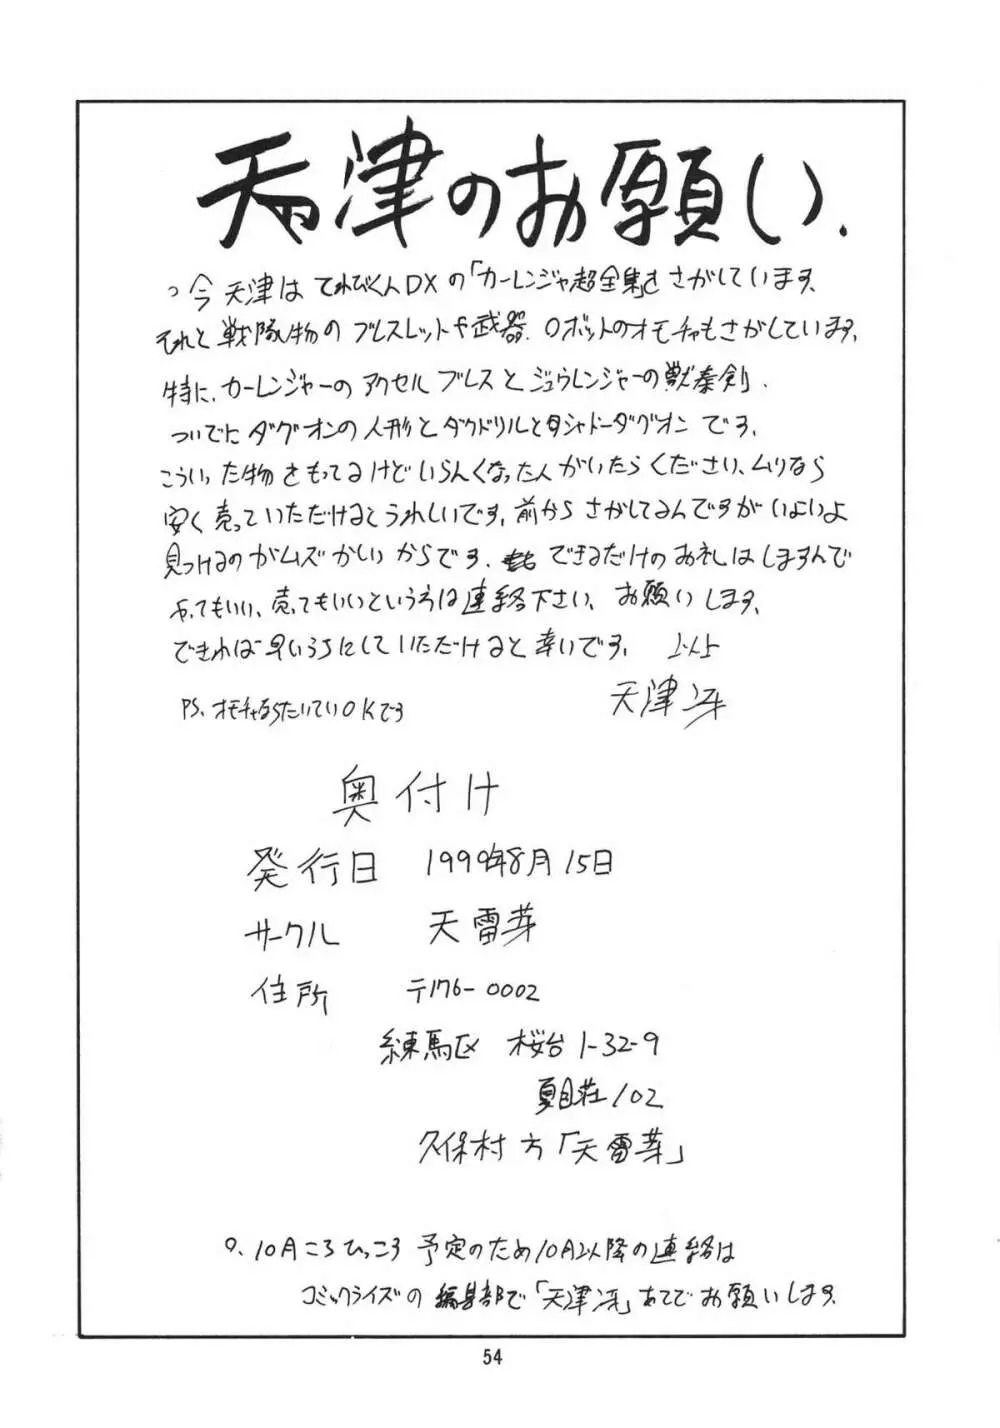 天津のお願い.
今天津はてれびくんDXの「カーレンジャー超全集」をさがしています、
それと戦隊物のブレスレットや武器、ロボットのオモチャもさがしています、
特に、カーレンジャーのアクセルブレスとジュウレンジャーの獣奏剣、
ついでにダグオンの人形とダグドリルとシャドーダグオンです、
こういった物をもってるけどいらんくなった人がいたらください、ムリなら
安く売っていただけるとうれしいです、前からさがしてるんですがいよいよ
見つけるのがムズかしいからです、できるだけのお礼はしますんで
やってもいい、売ってもいいという方は連絡下さい、お願いします、
できれば早いうちにしていただけると幸いです、 以上
天津冴
PS、オモチャならたいていOKです
奥付け
発行日 1999年8月15日
サークル 天雷芽
住所 〒176-0002
練馬区 桜台1-32-9
夏目荘102
久保村方「天雷芽」
9、10月ころひっこる予定のため10月以降の連絡は
コミックライズの編集部で「天津冴」あてでお願いします、
54